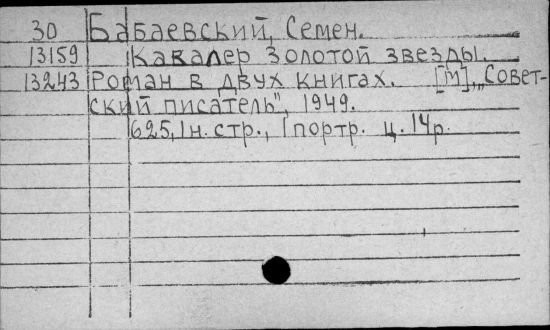 30 Бабаевский, Семен.
13159 Кавалер Золотой звезды.
13243 Роман в двух книгах. [М], „Совет-
ский писатель", 1949.
625, 1 н. стр., 1 портр. ц. 14 р.